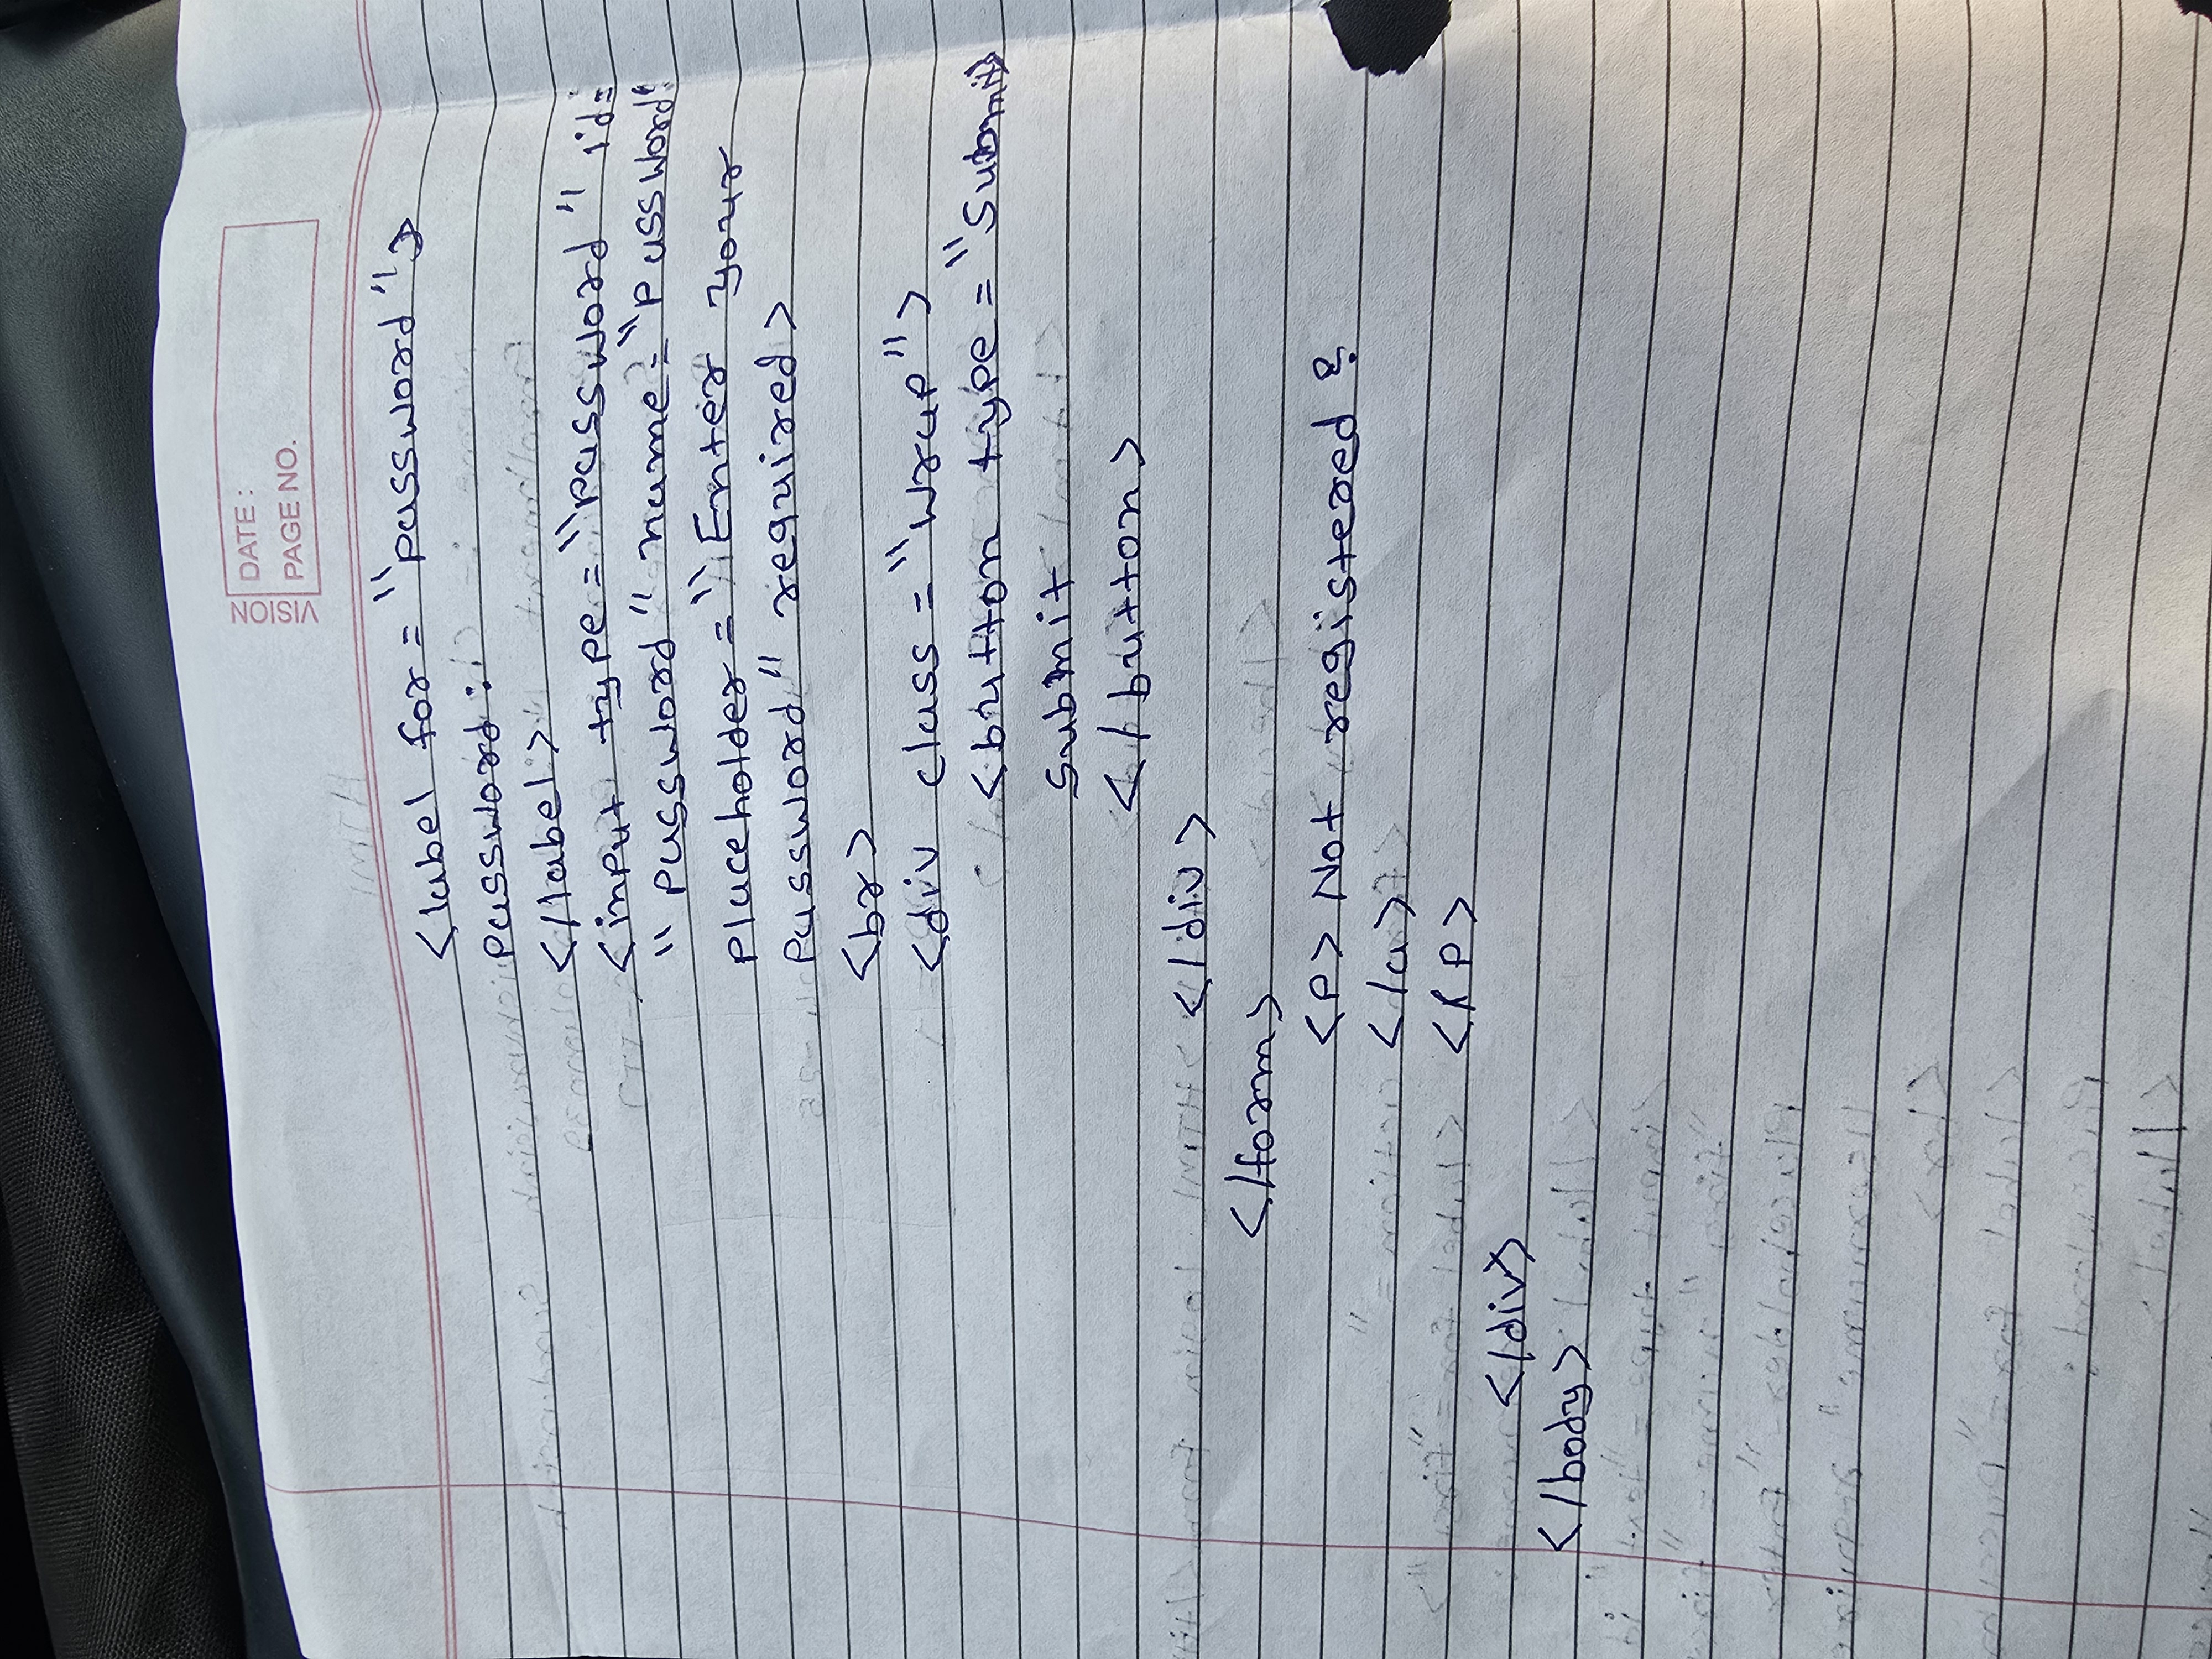 VISION
DATE :
PAGE NO.
<label for = "password">
password:
</label>
<input type = "password" id=
"password" name="password"
placeholder = "Enter your
password" required>
<br>
<div class = "wrap">
<button type = "submit>
submit
</button>
</div>
</form>
<p> Not registered ?
</a>
</p>
</div>
</body>